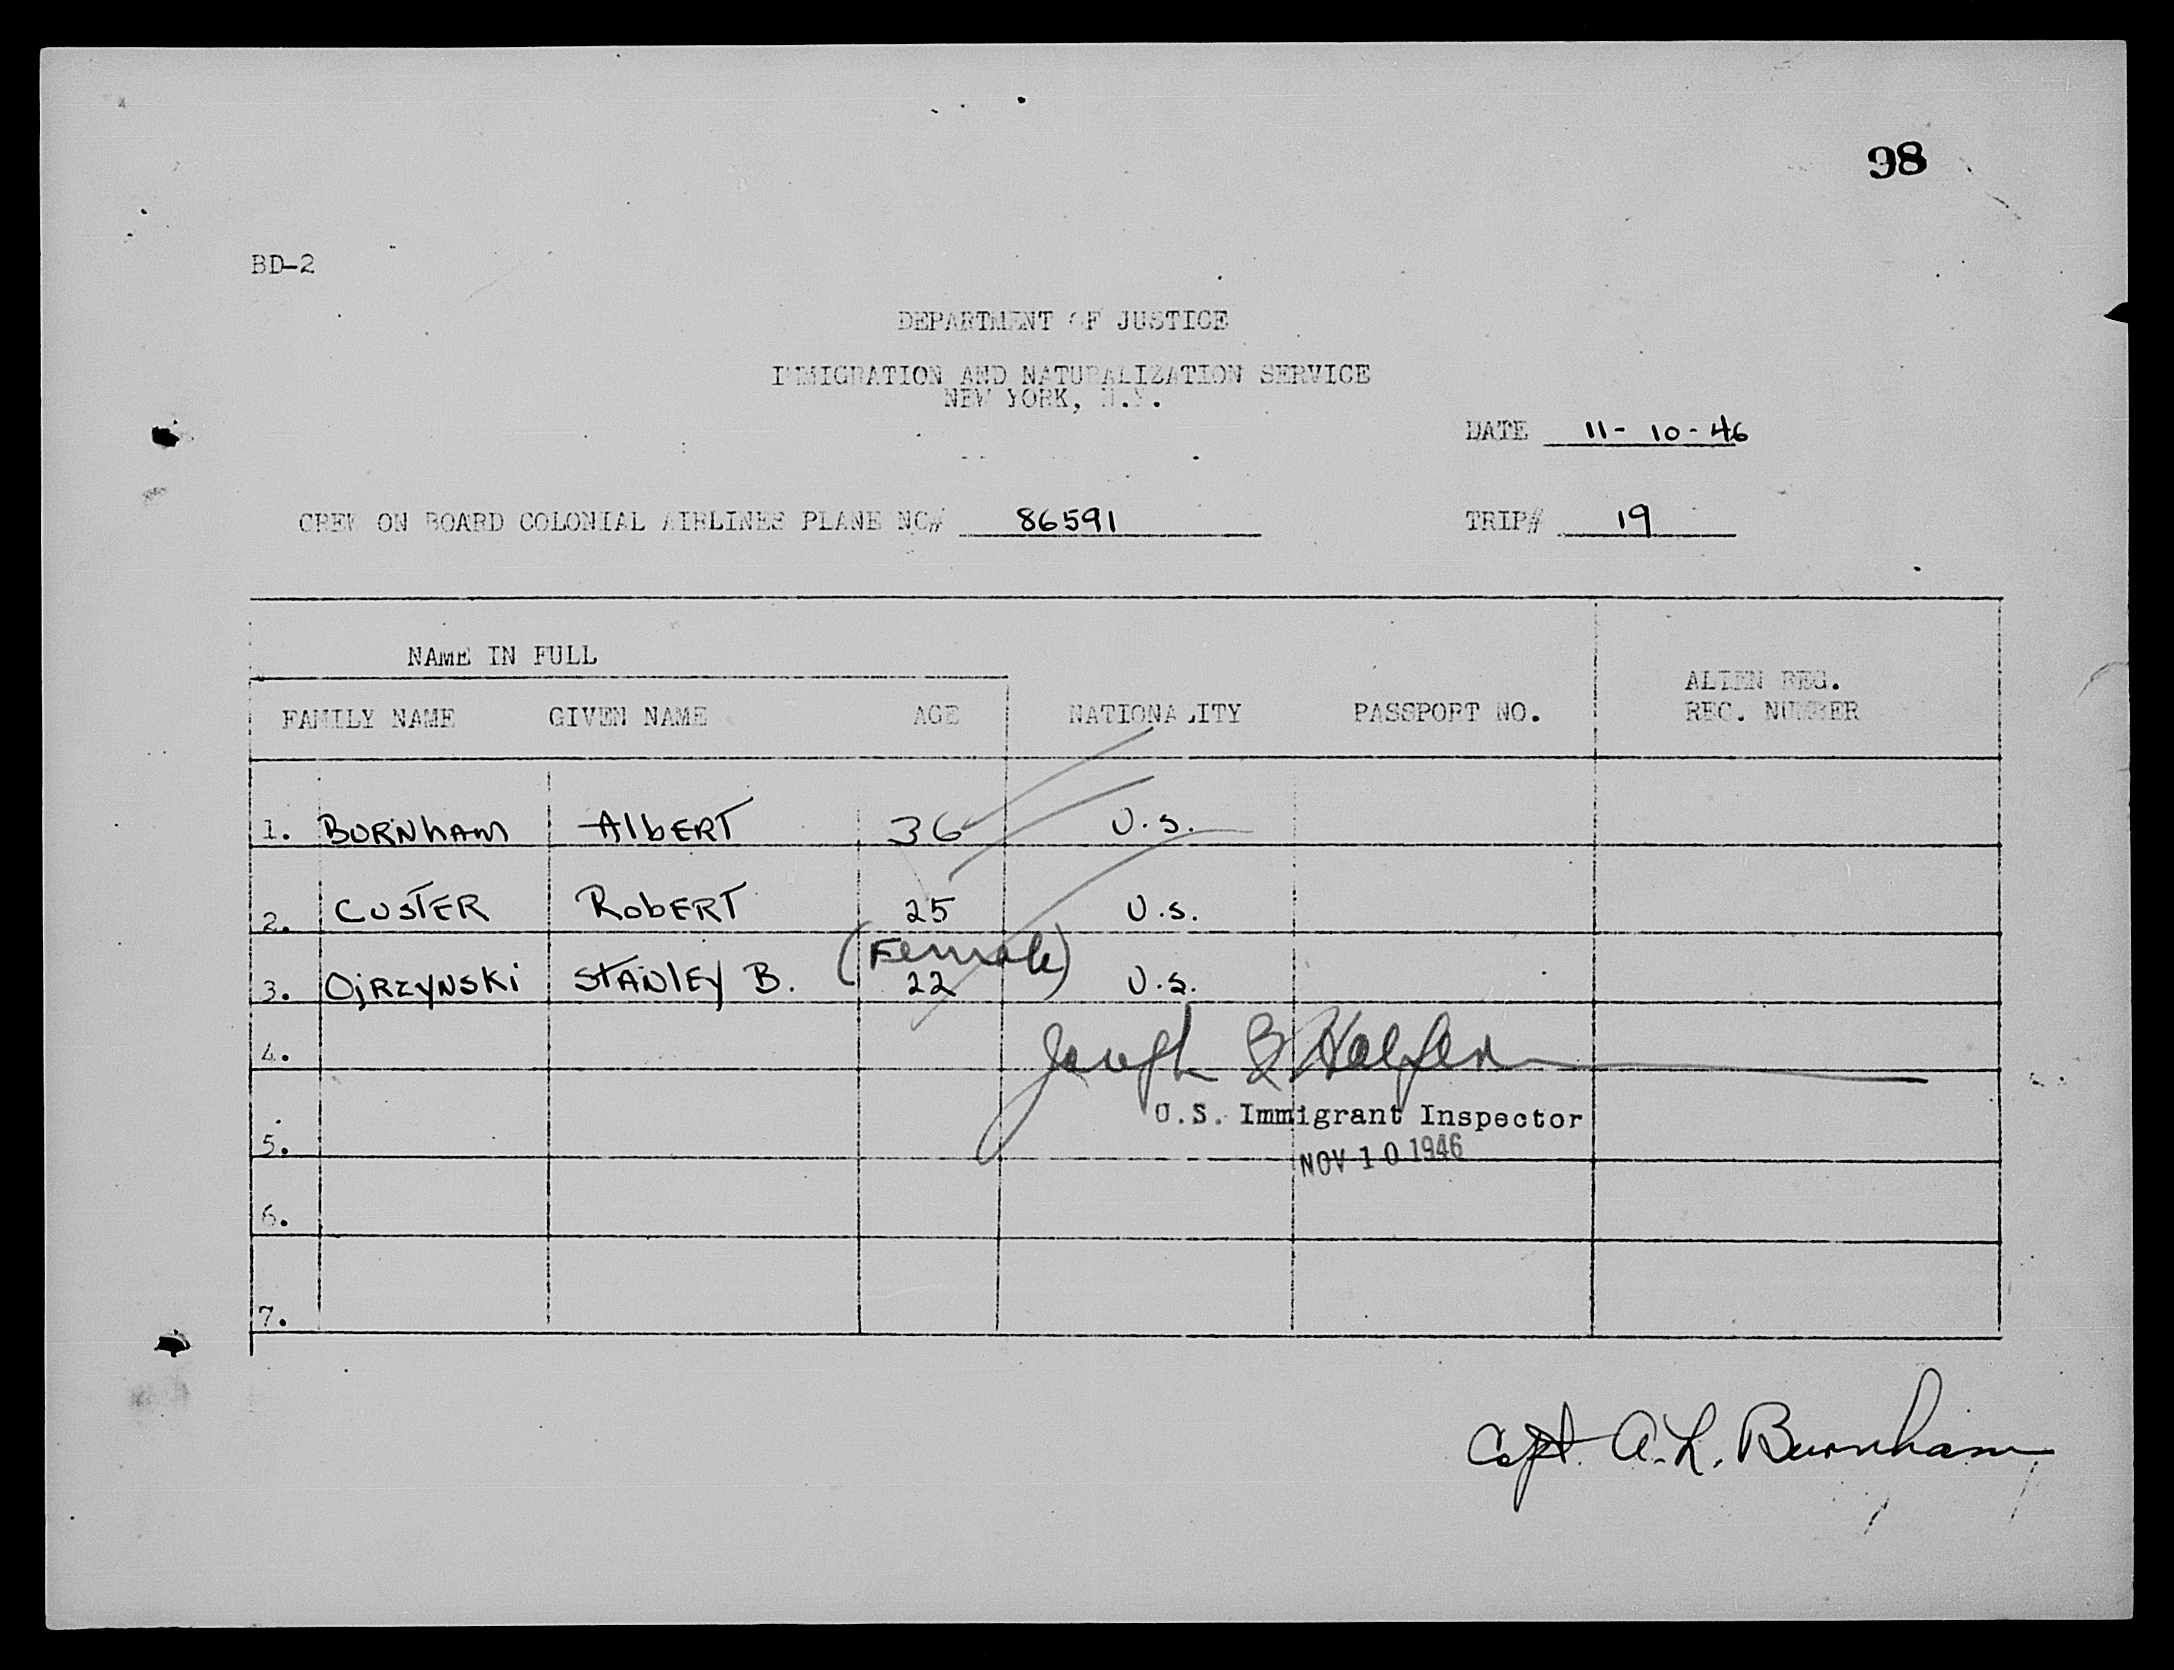 98
BD-2
DEPARTMENT OF JUSTICE
IMMIGRATION AND NATURALIZATION SERVICE
NEW YORK, N.Y.
DATE 11-10-46
CREW ON BOARD COLONIAL AIRLINES PLANE NC# 86591 TRIP# 19
NAME IN FULL
FAMILY NAME GIVEN NAME AGE NATIONALITY PASSPORT NO. ALIEN REG. REC. NUMBER
1. BURNhAM AlbERT 36 U.S.
2. CUSTER RobERT 25 U.S.
(Female)
3. OjRZYNSKi STANlEY B. 22 U.S.
4.
Joseph B Halpern
U.S. Immigrant Inspector
5.
NOV 10 1946
6.
7.
Capt. A. L. Burnham